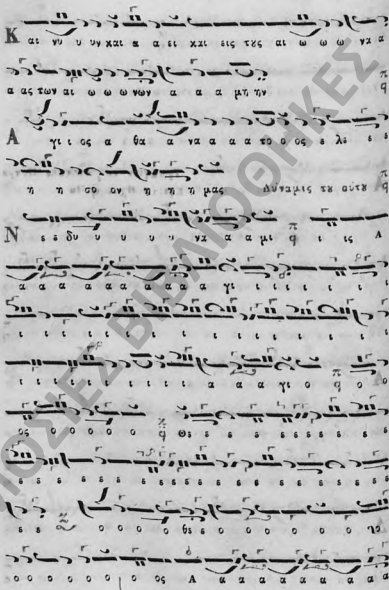 Κ αι νυ υ υν και α α ει και εις τȣς αι ω ω ω να α
α ας των αι ω ω ω νων α α α μη ην
Α γι ι ος α θα α να α α α το ο ος ε λε ε
η η σο ον η η η μας Δυναμις τȣ αυτȣ
Ν ε ε δυ υ υ υ υ να α α μι ι ις Α
α α α α α α α α α α γι ι ι ι ι ι
ι ι ι ι ι ι ι ι ι ι ι ι ι
ι ι ι ι ι ι ι ι α α α γι ο ο
ος ο ο ο ο ο Θε ε ε ε ε ε ε ε ε
ε ε ε ε ε ε ε ε ε ε ε ε ε ε ε
ε ε ο ο ο ο θε ο ο ο ο ο ο ο
ο ο ο ο ο ο ο ο ος Α α α α α α α α
ΔΗΜΟΣΙΕΣ ΒΙΒΛΙΟΘΗΚΕΣ